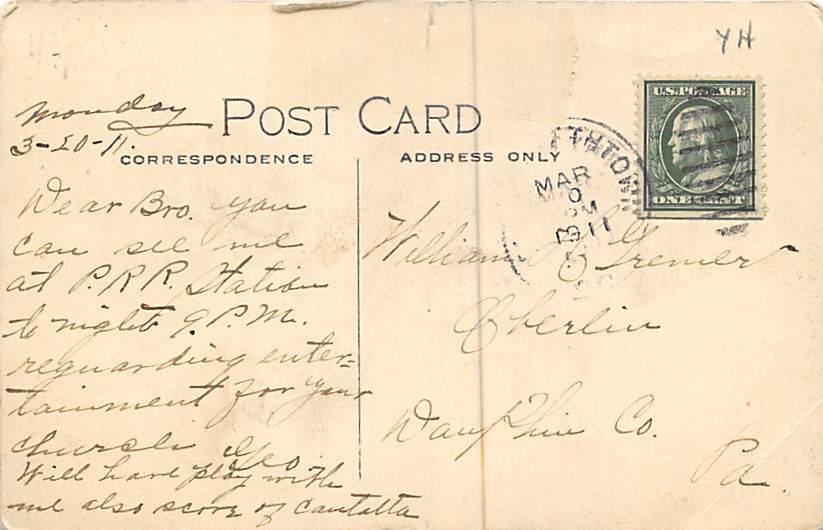 YH
Monday
3-20-11.
POST CARD
CORRESPONDENCE
ADDRESS ONLY
U.S. POSTAGE
ONE CENT
THTOWN
MAR
1911
Dear Bro. you
can see me
at P.R.R. Station
to night 9 P.M.
reguarding enter-
tainment for your
church Geo.
Will have play with
me also score of Cantatta
William
Oberlin
Dauphin Co.
Pa.